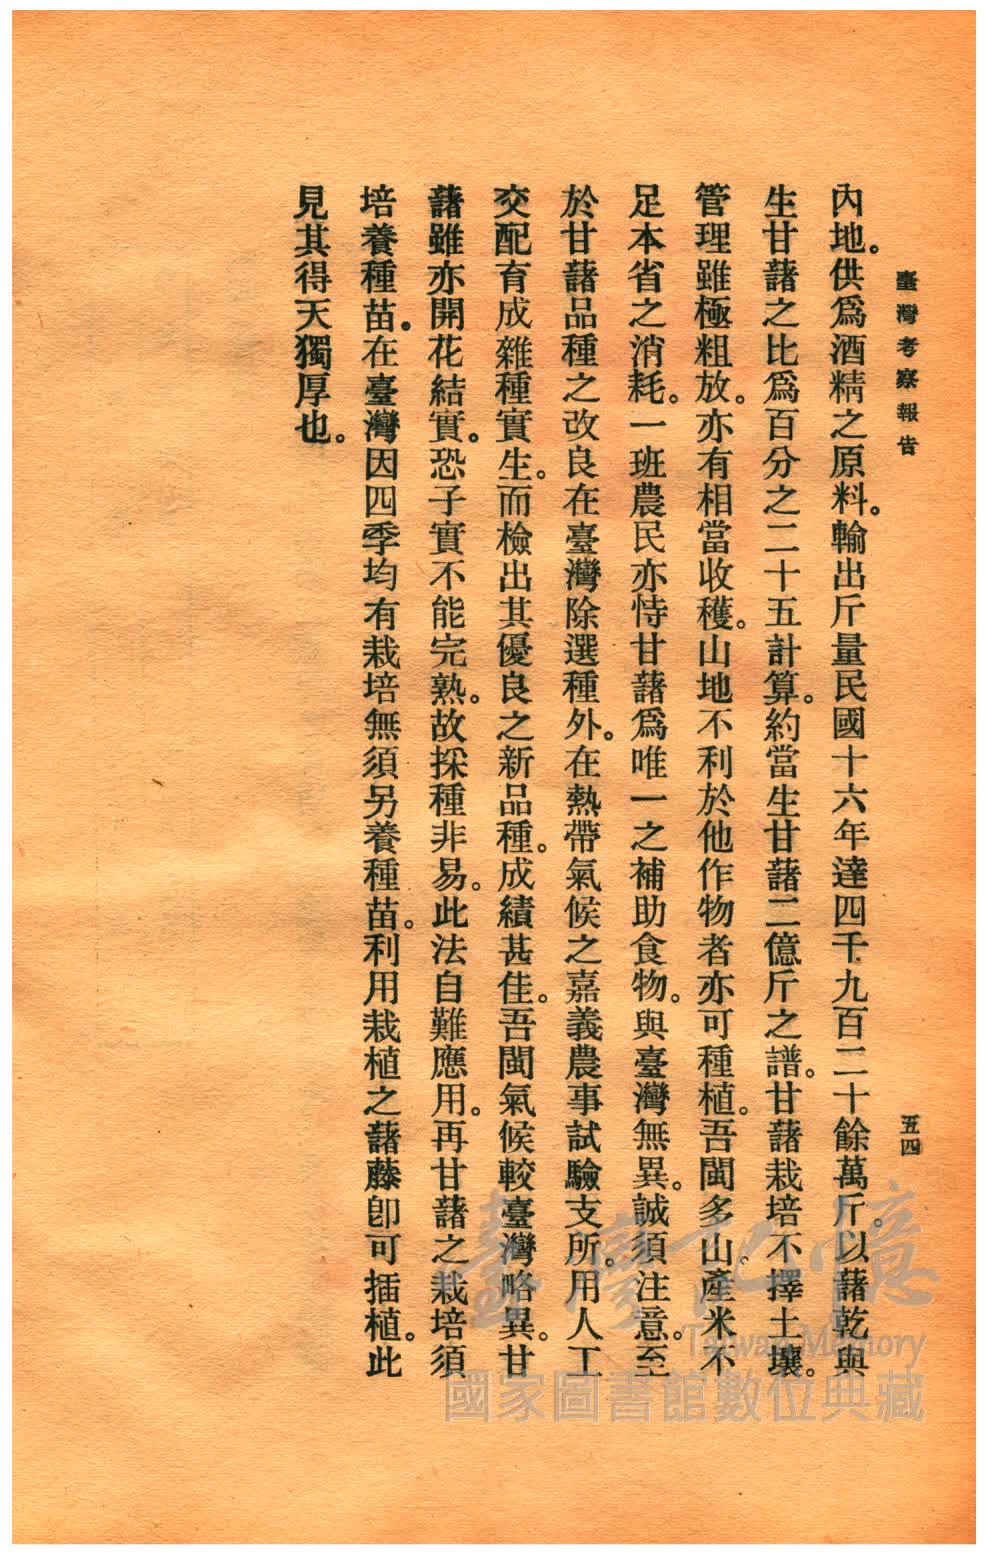 臺灣考察報告
五四
內地。供爲酒精之原料。輸出斤量民國十六年達四千九百二十餘萬斤。以藷乾與
生甘藷之比爲百分之二十五計算。約當生甘藷二億斤之譜。甘藷栽培不擇土壤。
管理雖極粗放。亦有相當收穫。山地不利於他作物者亦可種植。吾閩多山。產米不
足本省之消耗。一班農民亦恃甘藷爲唯一之補助食物。與臺灣無異。誠須注意。至
於甘藷品種之改良在臺灣除選種外。在熱帶氣候之嘉義農事試驗支所。用人工
交配育成雜種實生。而檢出其優良之新品種。成績甚佳。吾閩氣候較臺灣略異。甘
藷雖亦開花結實。恐子實不能完熟。故採種非易。此法自難應用。再甘藷之栽培須
培養種苗。在臺灣因四季均有栽培無須另養種苗。利用栽植之藷藤卽可插植。此
見其得天獨厚也。
臺灣記憶
Taiwan Memory
國家圖書館數位典藏